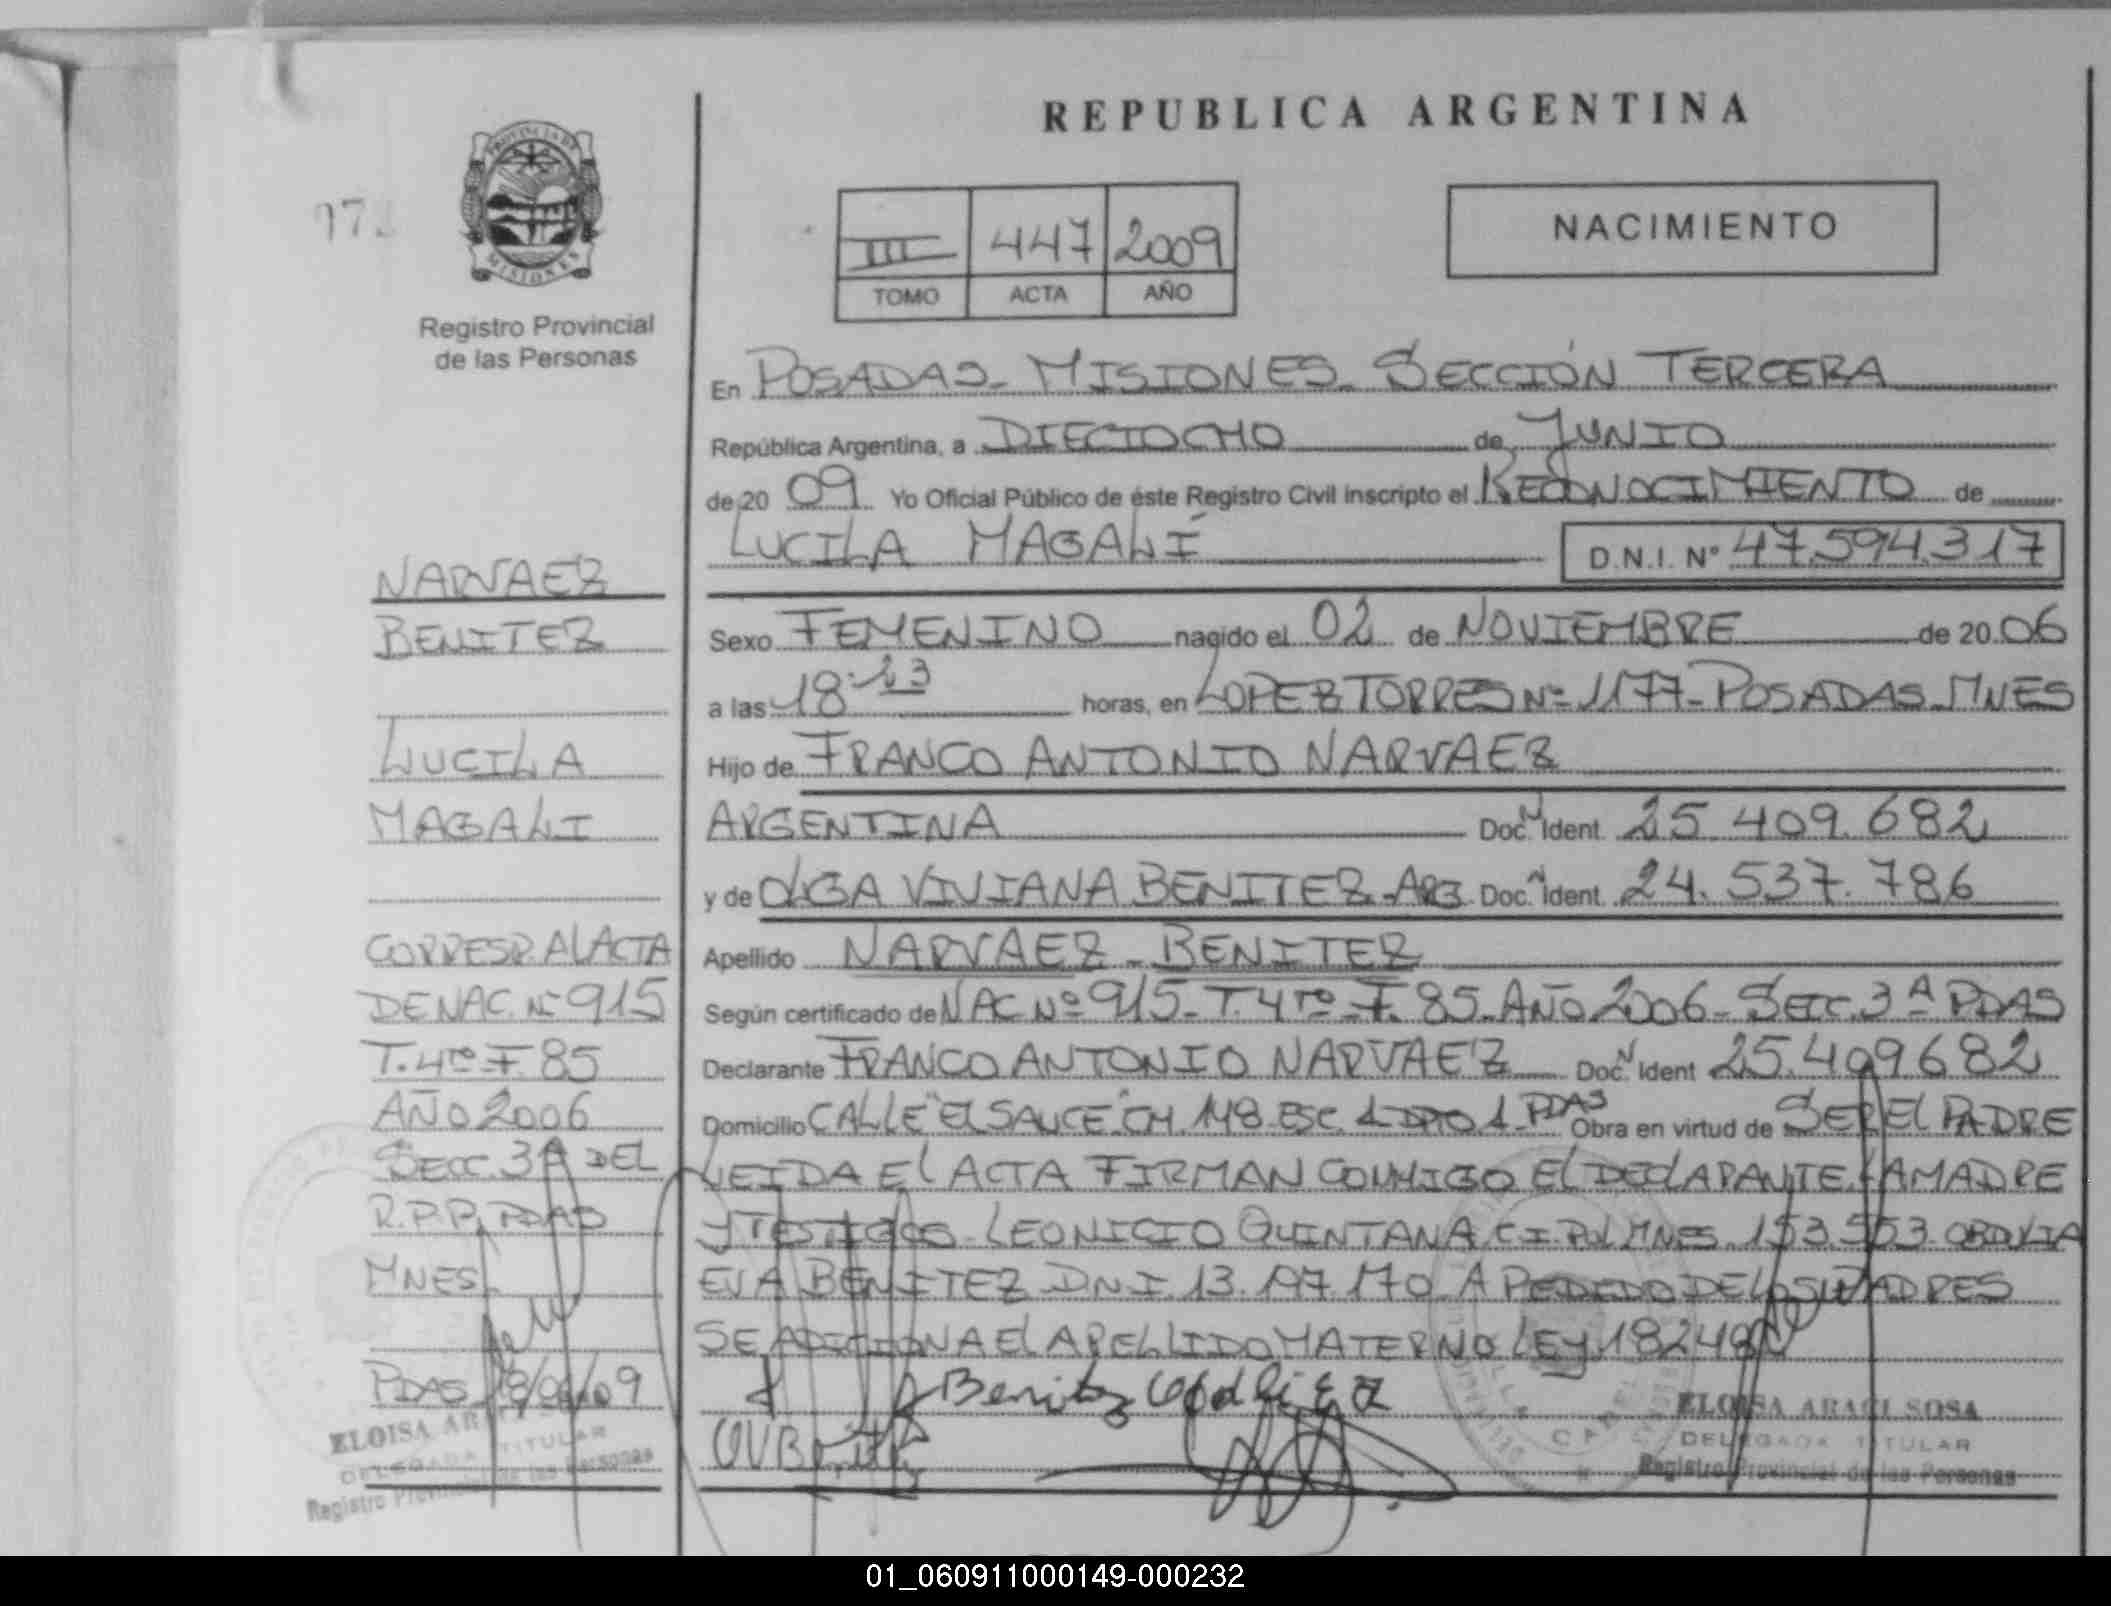 REPUBLICA ARGENTINA
PROVINCIA DE MISIONES
Registro Provincial
de las Personas
III 447 2009
TOMO ACTA AÑO
NACIMIENTO
En POSADAS - MISIONES - SECCIÓN TERCERA
República Argentina, a DIECIOCHO de JUNIO
de 20 09 Yo Oficial Público de éste Registro Civil inscripto el RECONOCIMIENTO de
LUCILA MAGALÍ D.N.I. Nº 47.594.317
Sexo FEMENINO nacido el 02 de NOVIEMBRE de 20 06
a las 18:23 horas, en LOPEZ TORRES Nº 1177 - POSADAS - MNES
Hijo de FRANCO ANTONIO NARVAEZ
ARGENTINA Doc. N Ident. 25.409.682
y de OLGA VIVIANA BENITEZ - ARG Doc. N Ident. 24.537.786
Apellido NARVAEZ - BENITEZ
Según certificado de NAC Nº 915 - T. 4to - F. 85 - AÑO 2006 - SECC. 3ª PDAS
Declarante FRANCO ANTONIO NARVAEZ Doc. N Ident 25.409682
Domicilio CALLE "EL SAUCE" CH. 148 ESC. 1 DPTO 1 - PDAS Obra en virtud de SER EL PADRE
LEIDA EL ACTA FIRMAN CONMIGO EL DECLARANTE LA MADRE
Y TESTIGOS - LEONICIO QUINTANA C.I. POL MNES. 153.553
EVA BENITEZ D.N.I. 13.197.170 A PEDIDO DE LOS PADRES
SE ADICIONA EL APELLIDO MATERNO LEY 18248
Benitez
OVBenitez
ELOISA ARACI SOSA
DELEGADA TITULAR
Registro Provincial de las Personas
NARVAEZ
BENITEZ
LUCILA
MAGALI
CORRESP. AL ACTA
DE NAC. Nº 915
T. 4to F. 85
AÑO 2006
SECC. 3ª DEL
R.P.P. PDAS
MNES
PDAS 18/06/09
ELOISA ARACI SOSA
DELEGADA TITULAR
Registro Provincial de las Personas
01_060911000149-000232